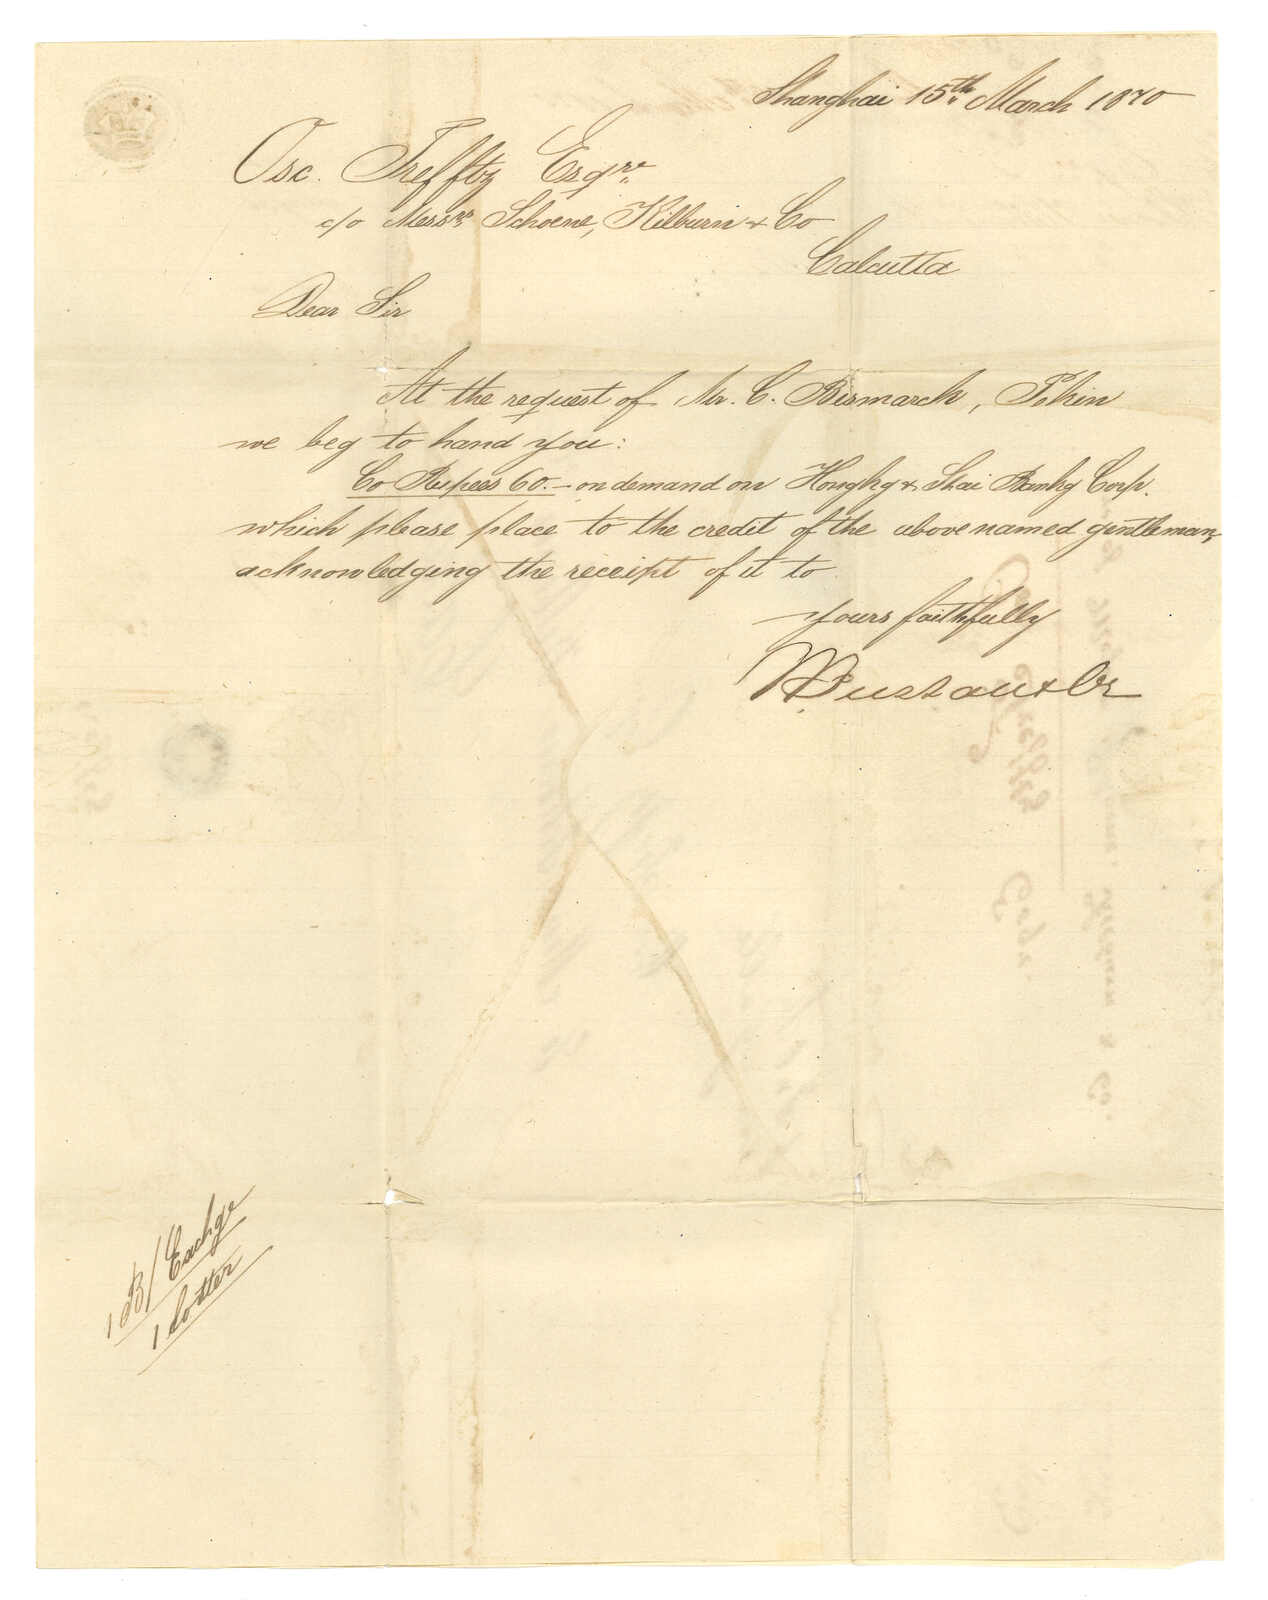 Shanghai 15th March 1870
Osc. Trefftz Esqre
c/o Messrs Schoene, Kilburn & Co
Calcutta
Dear Sir
At the request of Mr. C. Bismarck, Pekin
we beg to hand you:
Co Rupees 60.– on demand on Hongkg & Shai Bankg Corp.
which please place to the credit of the above named gentleman,
acknowledging the receipt of it to
yours faithfully
Pustau & Co
1 B/Exchge
1 Letter